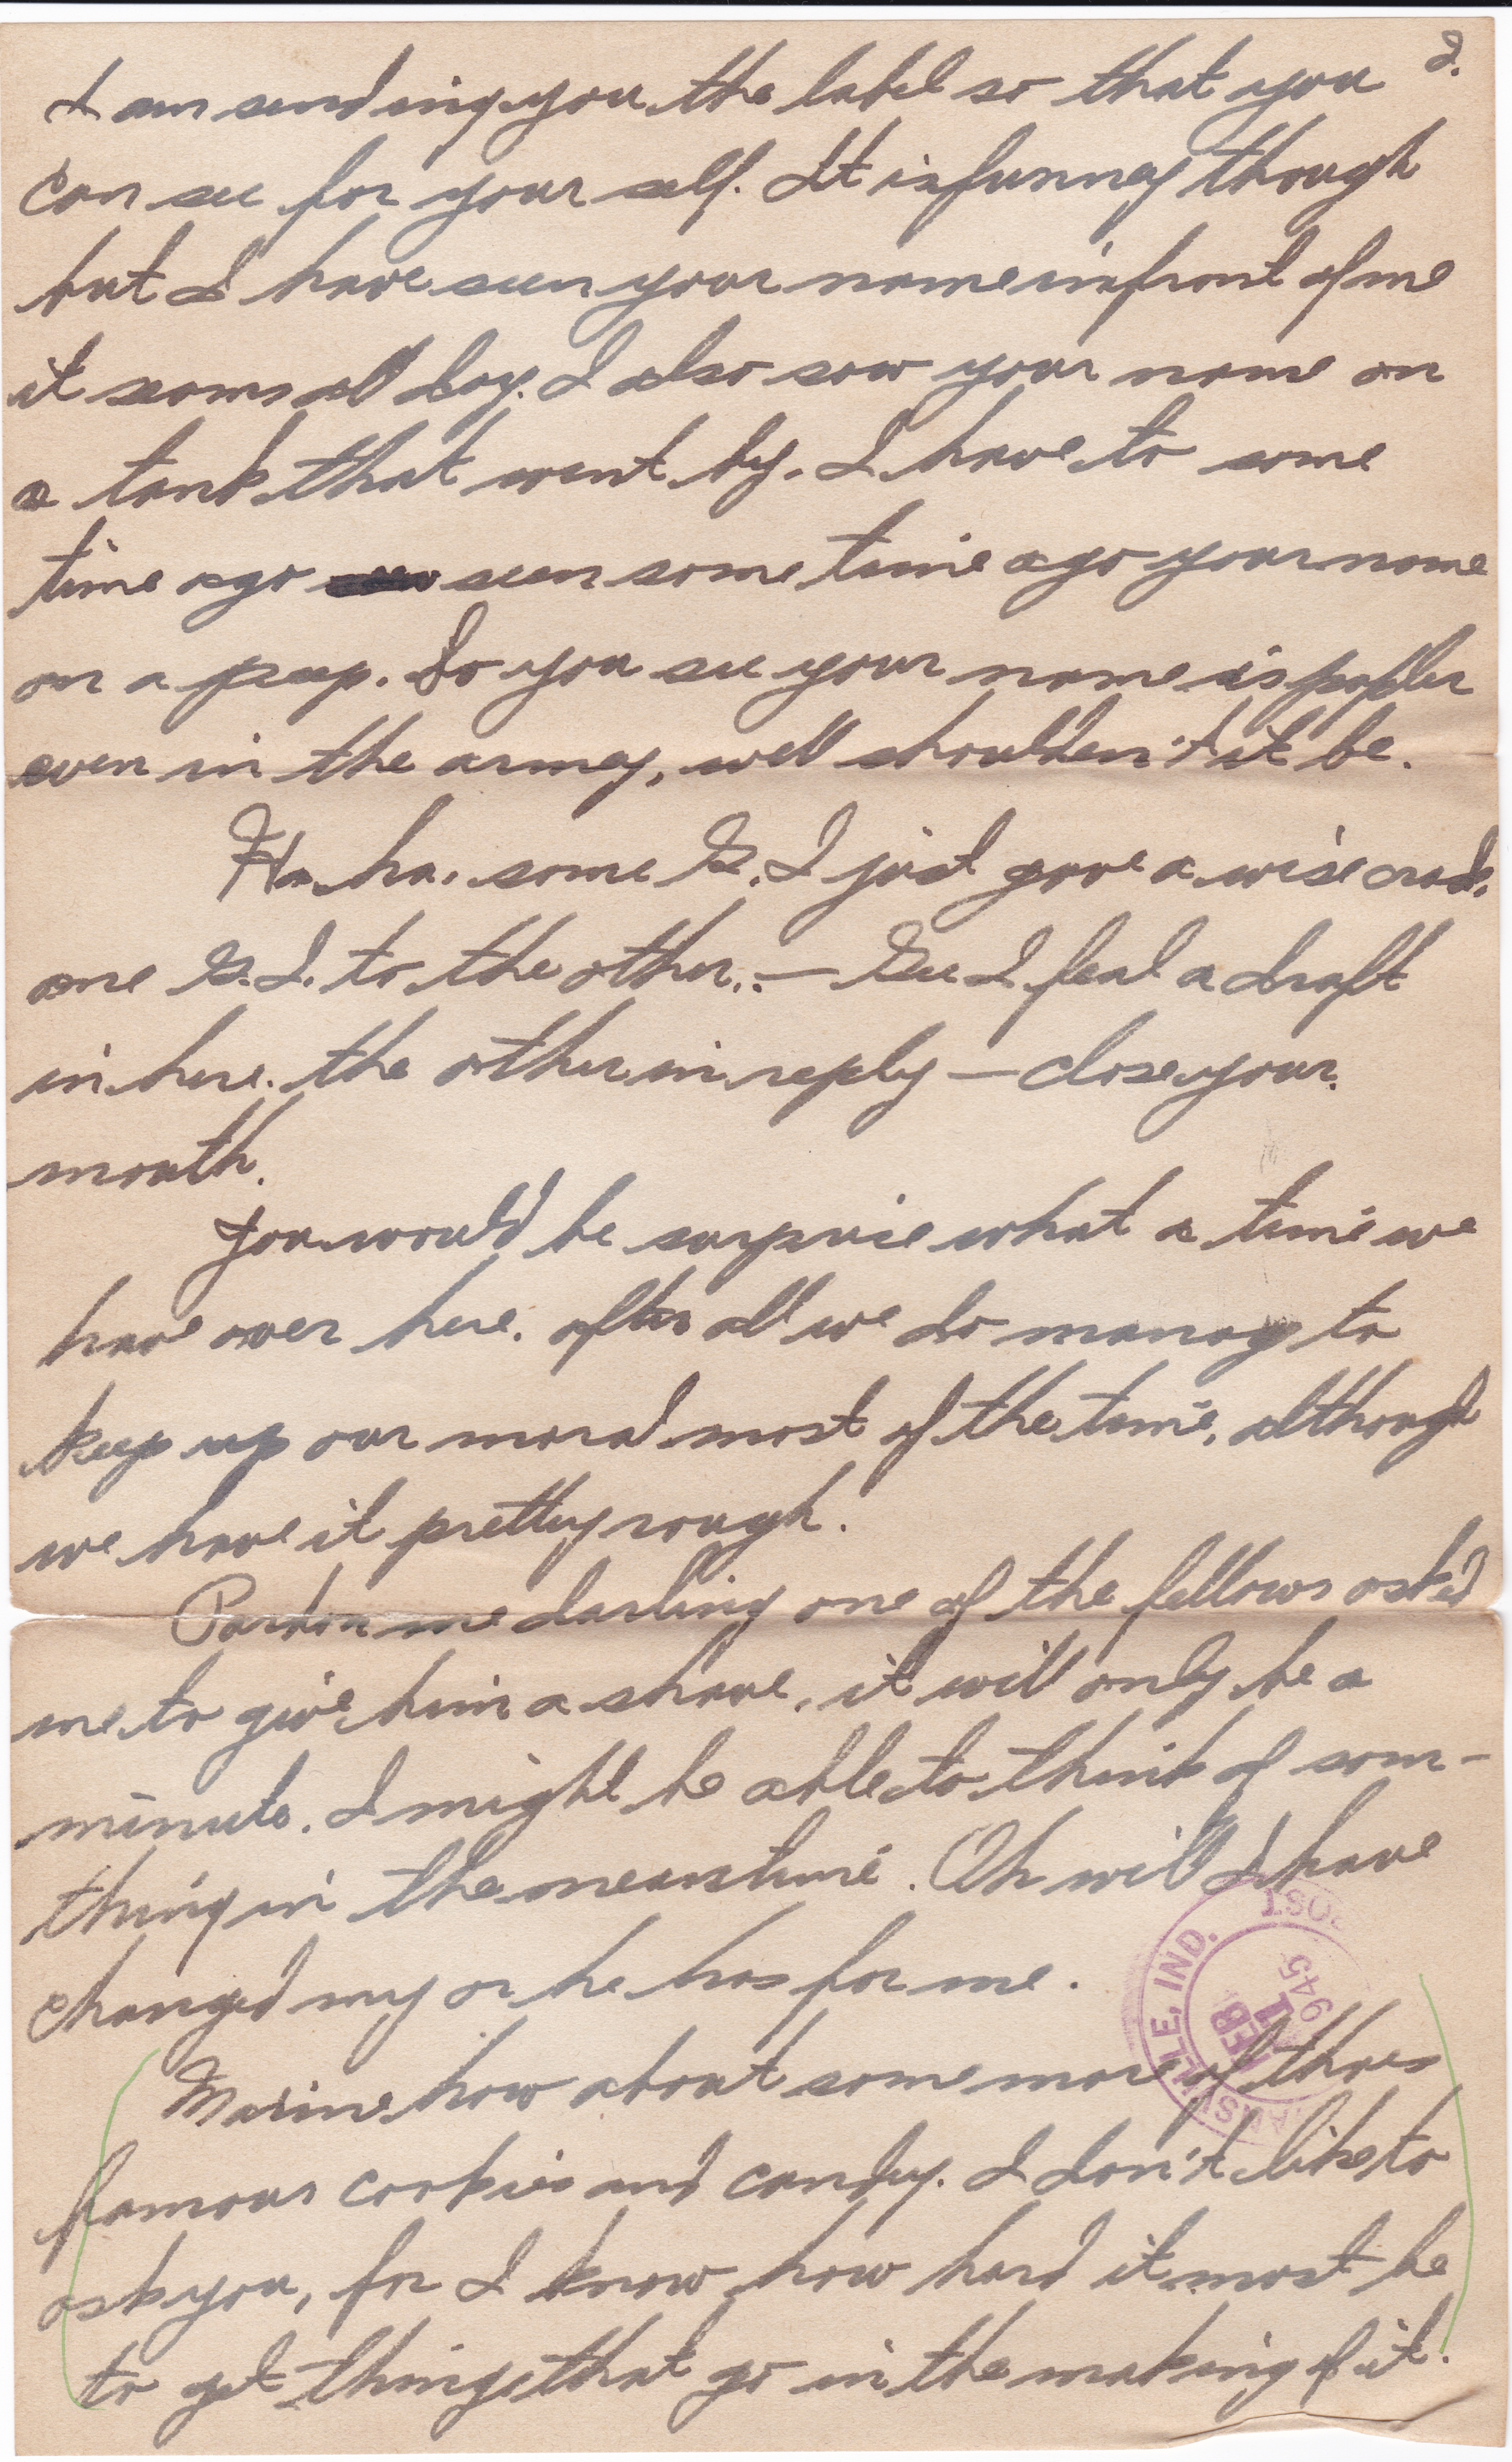 2.
I am sending you the label so that you
can see for your self. It is funney though
but I have seen your name infront of me
it seams all day. I also saw your name on
a tank that went by. I have to some
time ago seen some time ago your name
on a peep. So you see your name is popler
even in the army, well shoulden't it be.
Ha. ha. some G.I just gave a wise crack.
one G.I. to the other. — Gee I feal a draft
in here. the other in reply — close your
mouth.
You would be surprise what a time we
have over here. after all we do manag to
keep up our moral most of the time, although
we have it pretty rough.
Pardon me darling one of the fellows ask'd
me to give him a shave, it will only be a
minute. I might be able to think of som-
thing in the meantime. Oh will I have
changed my or he has for me.
Maxine how about some more of thoes
famous cookies and candy. I don't like to
ask you, for I know how hard it must be
to get things that go in the making of it.
VILLE, IND.
FEB
1
945